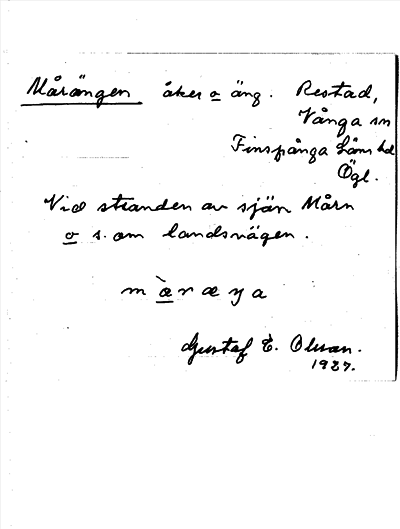 Mårängen åker o äng. Restad,
Vånga sn
Finspånga läns hd
Ögl.
Vid stranden av sjön Mårn
o s. om landsvägen.
mæ̀ræŋa
Gustaf E. Olsson.
1937.